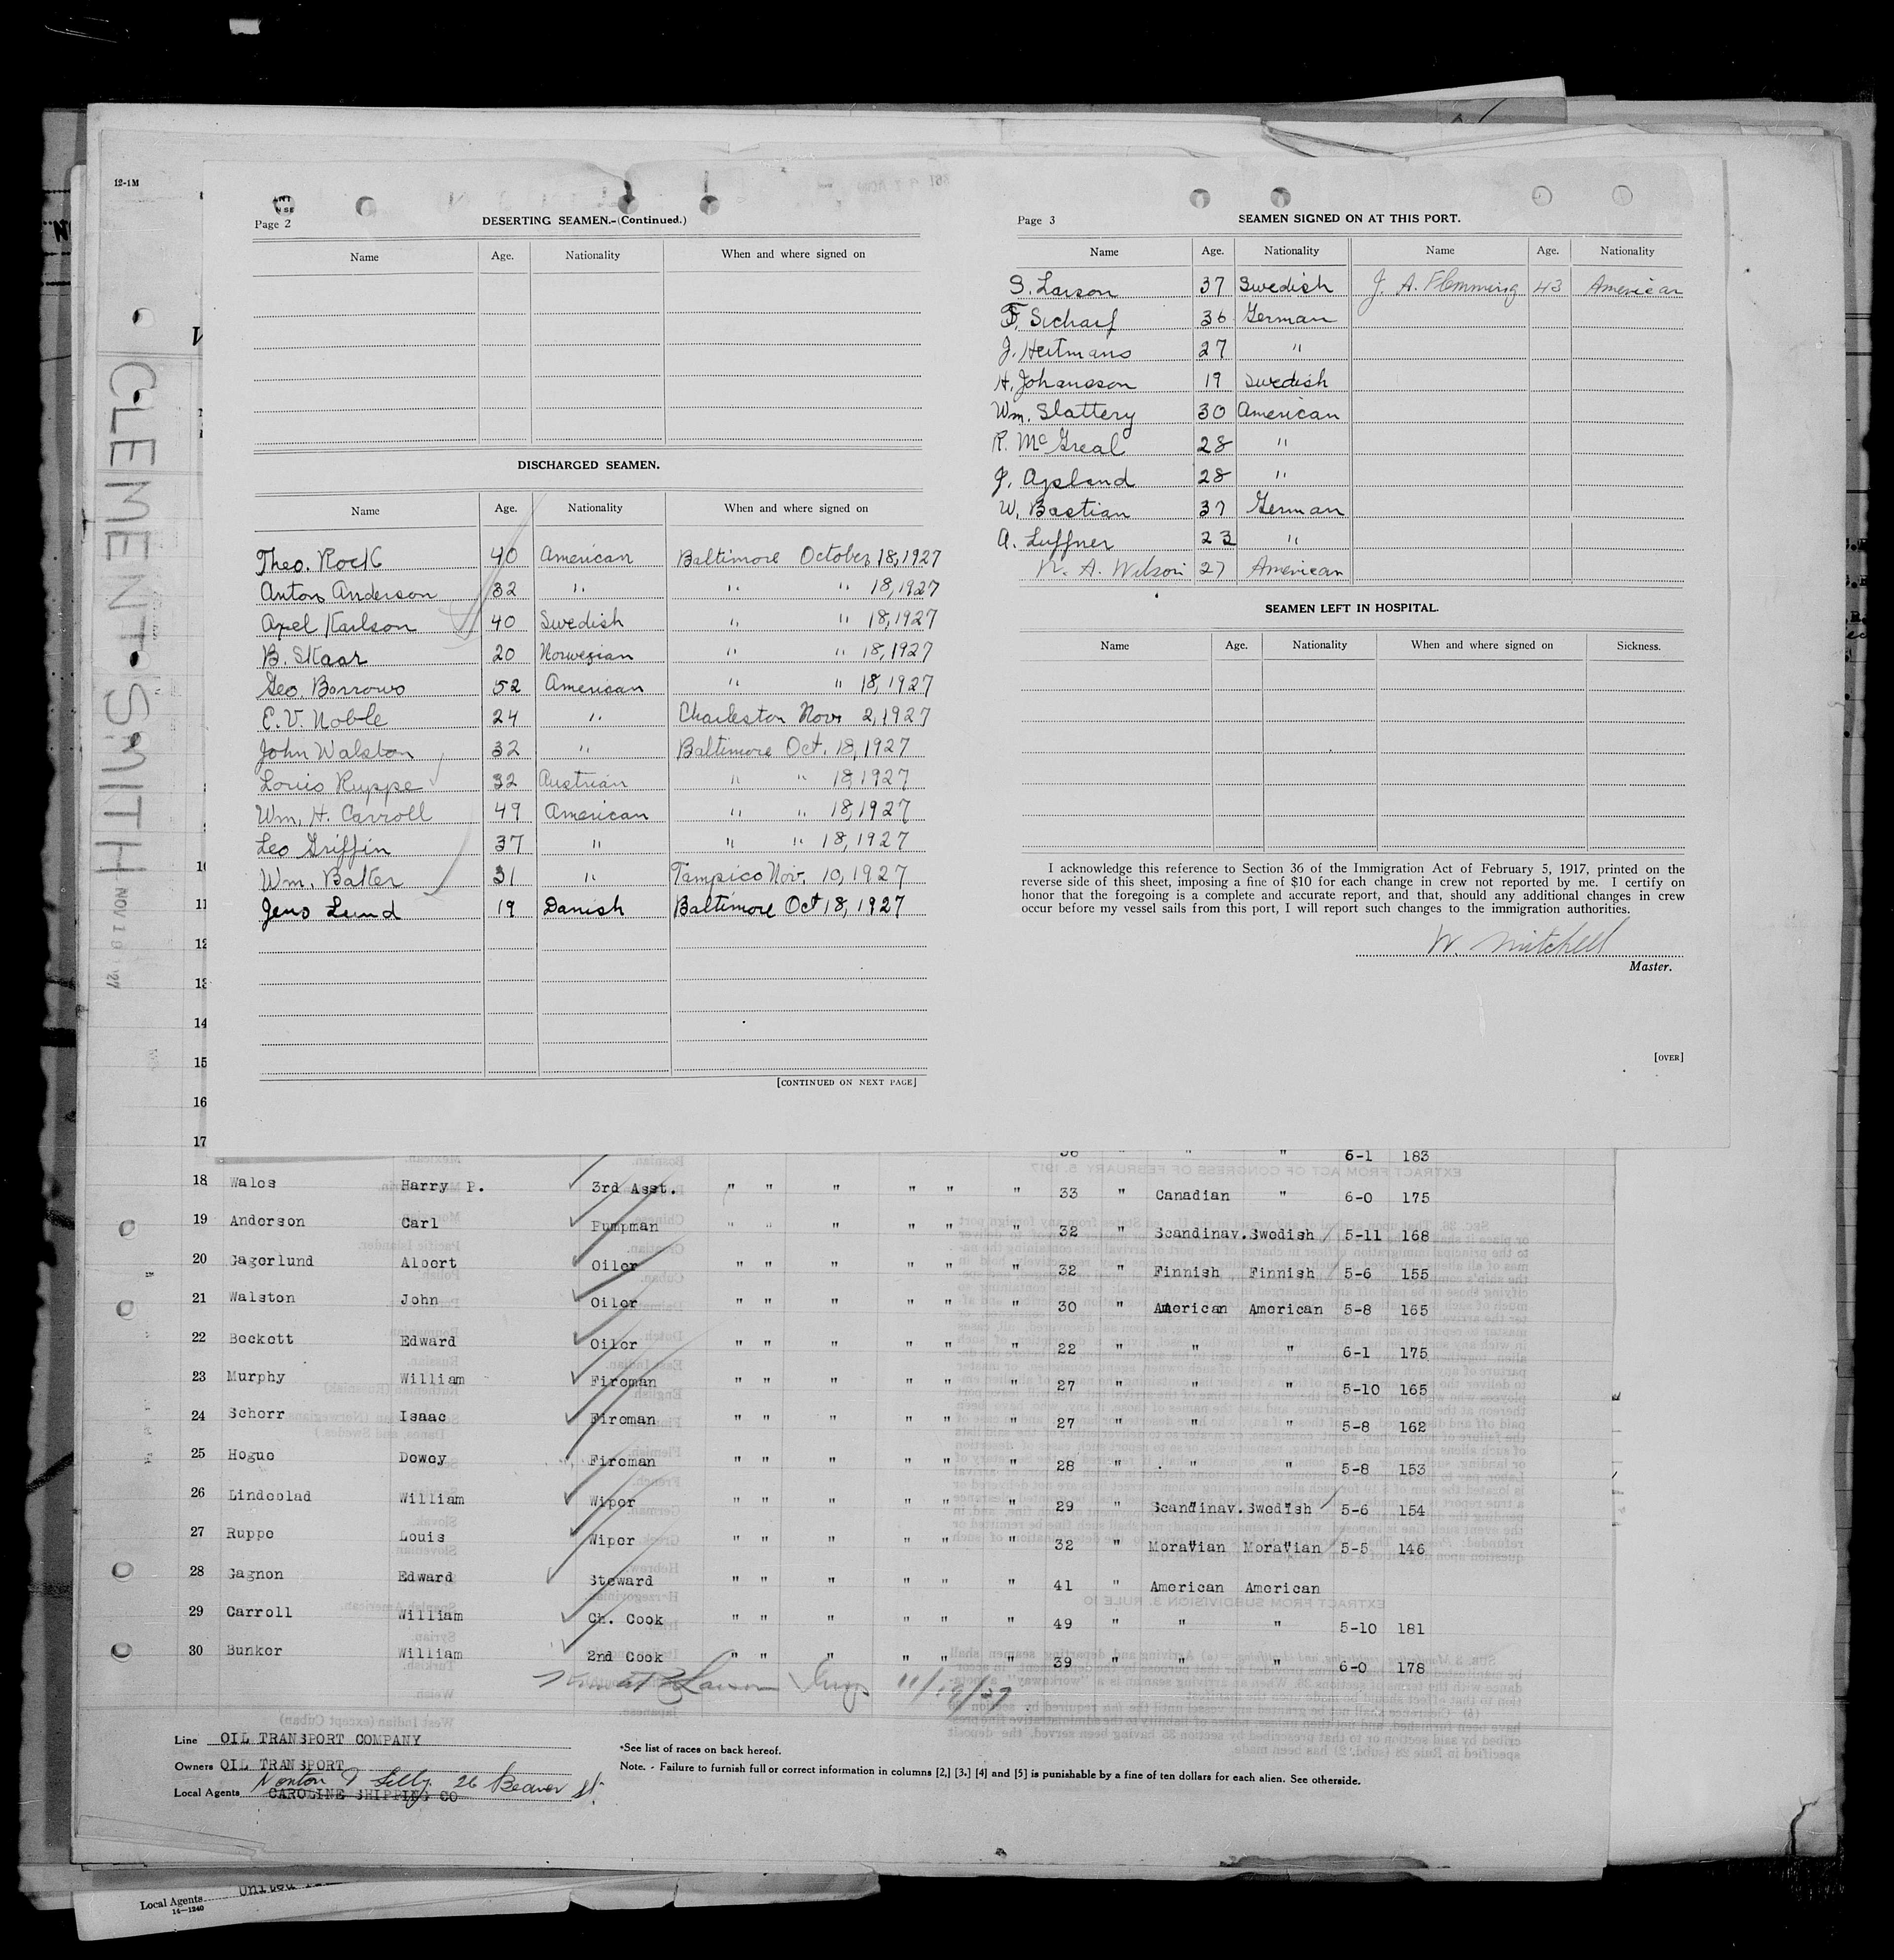 12-1M
CLEMENT SMITH
NOV 19 1927
Page 2
DESERTING SEAMEN.-(Continued.)
Name Age. Nationality When and where signed on
DISCHARGED SEAMEN.
Name Age. Nationality When and where signed on
Theo. Rock 40 American Baltimore October 18, 1927
Anton Anderson 32 " " " 18, 1927
Axel Karlson 40 Swedish " " 18, 1927
B. Skaar 20 Norwegian " " 18, 1927
Geo. Barrows 52 American " " 18, 1927
E. V. Noble 24 " Charleston Nov. 2, 1927
John Walston 32 " Baltimore Oct. 18, 1927
Louis Ruppe 32 Austrian " " 18, 1927
Wm. H. Carroll 49 American " " 18, 1927
Leo Griffin 37 " " " 18, 1927
Wm. Baker 31 " Tampico Nov. 10, 1927
Jens Lund 19 Danish Baltimore Oct 18, 1927
[CONTINUED ON NEXT PAGE]
Page 3
SEAMEN SIGNED ON AT THIS PORT.
Name Age. Nationality Name Age. Nationality
S. Larson 37 Swedish J. A. Flemming 43 American
F. Scharf 36 German
J. Heitmans 27 "
H. Johansson 19 Swedish
Wm. Slattery 30 American
R. McGreal 28 "
J. 28 "
W. Bastian 37 German
A. Luffner 23 "
A. Wilson 27 American
SEAMEN LEFT IN HOSPITAL.
Name Age. Nationality When and where signed on Sickness.
I acknowledge this reference to Section 36 of the Immigration Act of February 5, 1917, printed on the
reverse side of this sheet, imposing a fine of $10 for each change in crew not reported by me. I certify on
honor that the foregoing is a complete and accurate report, and that, should any additional changes in crew
occur before my vessel sails from this port, I will report such changes to the immigration authorities.
W. Mitchell
Master.
[OVER]
10
11
12
13
14
15
16
17 " " 6-1 183
18 Wales Harry P. 3rd Asst. " " " " " " 33 " Canadian " 6-0 175
19 Anderson Carl Pumpman " " " " " " 32 " Scandinav. Swedish 5-11 168
20 Gagerlund Albert Oiler " " " " " " 32 " Finnish Finnish 5-6 155
21 Walston John Oiler " " " " " " 30 " American American 5-8 165
22 Beckett Edward Oiler " " " " " " 22 " " " 6-1 175
23 Murphy William Fireman " " " " " " 27 " " " 5-10 165
24 Schorr Isaac Fireman " " " " " " 27 " " " 5-8 162
25 Hogue Dewey Fireman " " " " " " 28 " " " 5-8 153
26 Lindeolad William Wiper " " " " " " 29 " Scandinav. Swedish 5-6 154
27 Ruppe Louis Wiper " " " " " " 32 " Moravian Moravian 5-5 146
28 Gagnon Edward Steward " " " " " " 41 " American American
29 Carroll William Ch. Cook " " " " " " 49 " " " 5-10 181
30 Bunker William 2nd Cook " " " " " " 39 " " " 6-0 178
Larson 11/19/27
Line OIL TRANSPORT COMPANY
Owners OIL TRANSPORT
Norton & Lilly 26 Beaver St.
Local Agents CAROLINE SHIPPING CO
*See list of races on back hereof.
Note. - Failure to furnish full or correct information in columns [2,] [3.] [4] and [5] is punishable by a fine of ten dollars for each alien. See otherside.
Local Agents United
14-1240